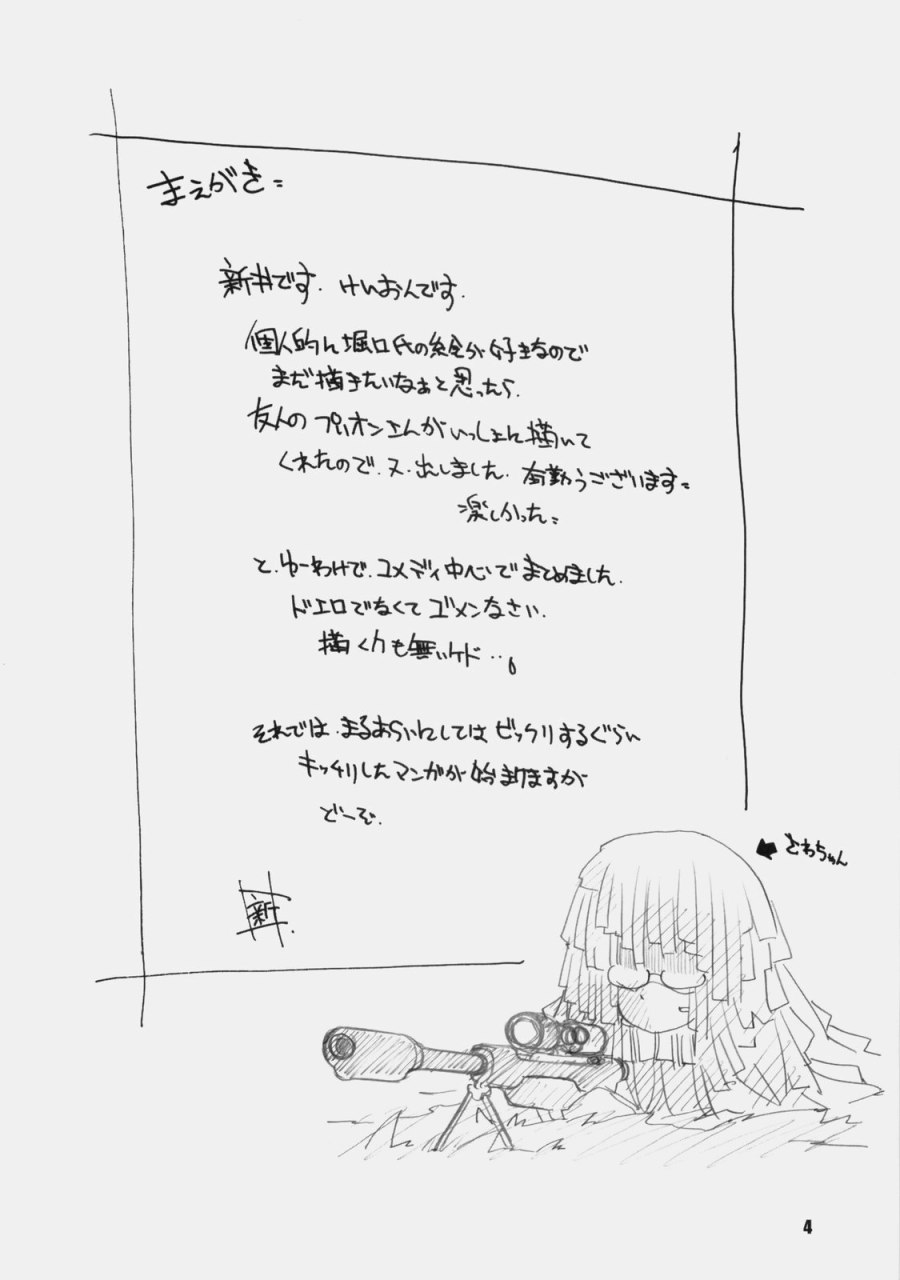 まえがき=
新井です. けいおんです.
個人的に堀口氏の絵が好きなので
まだ描きたいなぁと思ったら.
友人の プリオンさんがいっしょに描いて
くれたので.又.出しました. 有勤うございます=
楽しかった=
と.ゆーわけで.コメディ中心でまとめました.
ドエロでなくてゴメンなさい.
描く力も無いケド…。
それでは.まるあらいにしてはビックリするぐらい
キッチリしたマンガが始まりますが
どーぞ.
新.
とわちゃん
4